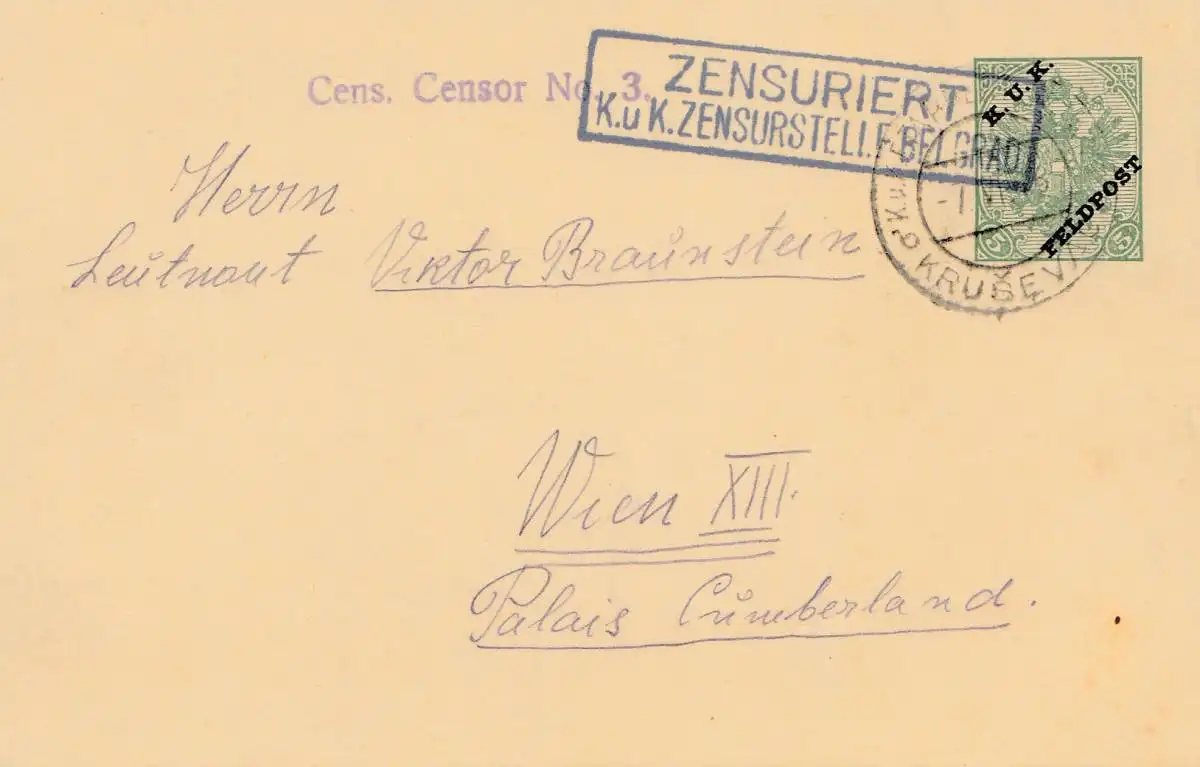 Cens. Censor No. 3.
ZENSURIERT
K.u K. ZENSURSTELLE BELGRAD
K. U. K.
FELDPOST
5 5
K.u.K.
KRUŠEVAC
Herrn
Leutnant Viktor Braunstein
Wien XIII.
Palais Cumberland.